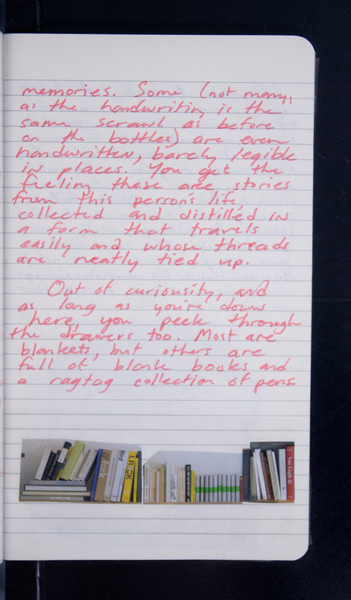 memories. Some (not many,
as the handwriting is the
same scrawl as before
on the bottles) are even
handwritten, barely legible
in places. You get the
feeling these are stories
from this person's life,
collected and distilled in
a form that travels
easily and whose threads
are neatly tied up.
Out of curiousity, and
as long as you're down
here, you peek through
the drawers too. Most are
blankets, but others are
full of blank books and
a ragtag collection of pens.